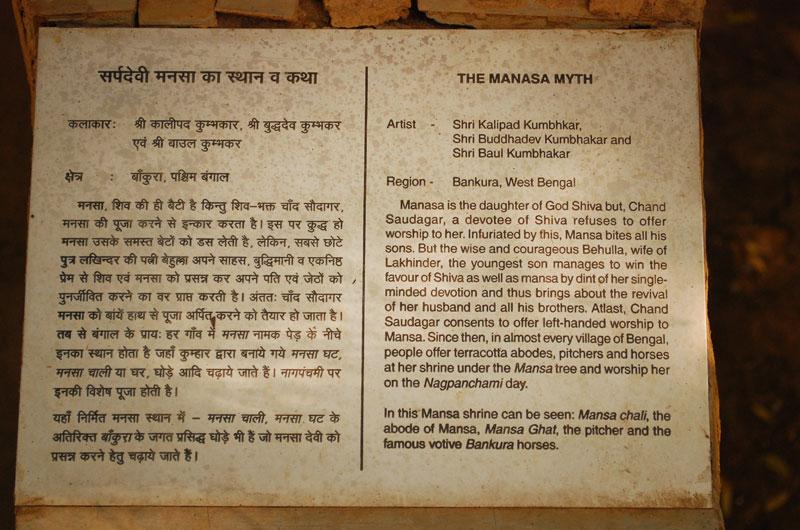 सर्पदेवी मनसा का स्थान व कथा
कलाकार: श्री कालीपद कुम्भकार, श्री बुद्धदेव कुम्भकर
एवं श्री बाउल कुम्भकर
क्षेत्र : बाँकुरा, पश्चिम बंगाल
मनसा, शिव की ही बैटी है किन्तु शिव–भक्त चाँद सौदागर,
मनसा की पूजा करने से इन्कार करता है। इस पर क्रुद्ध हो
मनसा उसके समस्त बेटों को डस लेती है, लेकिन, सबसे छोटे
पुत्र लखिन्दर की पत्नी बेहुल्ला अपने साहस, बुद्धिमानी व एकनिष्ठ
प्रेम से शिव एवं मनसा को प्रसन्न कर अपने पति एवं जेठों को
पुनर्जीवित करने का वर प्राप्त करती है। अंततः चाँद सौदागर
मनसा को बांयें हाथ से पूजा अर्पित करने को तैयार हो जाता है।
तब से बंगाल के प्रायः हर गाँव में मनसा नामक पेड़ के नीचे
इनका स्थान होता है जहाँ कुम्हार द्वारा बनाये गये मनसा घट,
मनसा चाली या घर, घोड़े आदि चढ़ाये जाते हैं। नागपंचमी पर
इनकी विशेष पूजा होती है।
यहाँ निर्मित मनसा स्थान में – मनसा चाली, मनसा घट के
अतिरिक्त बाँकुरा के जगत प्रसिद्ध घोड़े भी हैं जो मनसा देवी को
प्रसन्न करने हेतु चढ़ाये जाते हैं।
THE MANASA MYTH
Artist - Shri Kalipad Kumbhkar,
Shri Buddhadev Kumbhakar and
Shri Baul Kumbhakar
Region - Bankura, West Bengal
Manasa is the daughter of God Shiva but, Chand
Saudagar, a devotee of Shiva refuses to offer
worship to her. Infuriated by this, Mansa bites all his
sons. But the wise and courageous Behulla, wife of
Lakhinder, the youngest son manages to win the
favour of Shiva as well as mansa by dint of her single-
minded devotion and thus brings about the revival
of her husband and all his brothers. Atlast, Chand
Saudagar consents to offer left-handed worship to
Mansa. Since then, in almost every village of Bengal,
people offer terracotta abodes, pitchers and horses
at her shrine under the Mansa tree and worship her
on the Nagpanchami day.
In this Mansa shrine can be seen: Mansa chali, the
abode of Mansa, Mansa Ghat, the pitcher and the
famous votive Bankura horses.